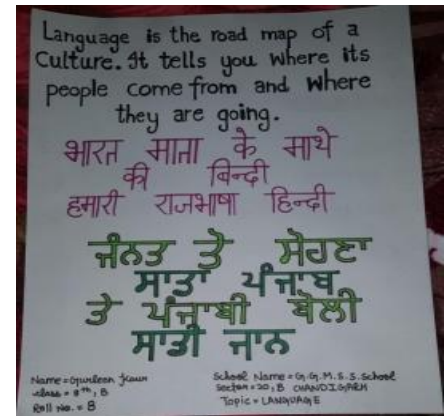 Language is the road map of a
Culture. It tells you where its
people come from and where
they are going.
भारत माता के माथे
की बिन्दी
हमारी राजभाषा हिन्दी
ਜੰਨਤ ਤੋਂ ਸੋਹਣਾ
ਸਾਡਾ ਪੰਜਾਬ
ਤੇ ਪੰਜਾਬੀ ਬੋਲੀ
ਸਾਡੀ ਜਾਨ
Name = Gurleen Kaur
class = 8th, B
Roll No. = 8
School Name = G.G.M.S.S.School
Sector = 20, B CHANDIGARH
Topic = LANGUAGE